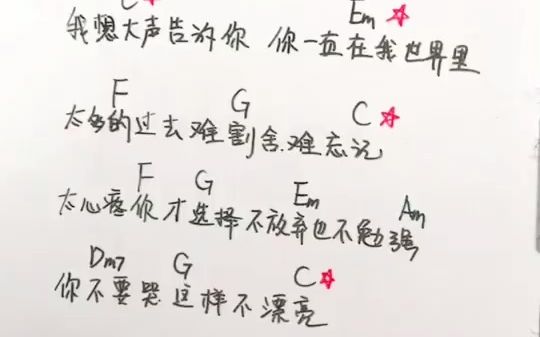 C Em
我想大声告诉你 你一直在我世界里
F G C
太多的过去难割舍.难忘记
F G Em Am
太心疼你才选择不放弃也不勉强
Dm7 G C
你不要哭这样不漂亮